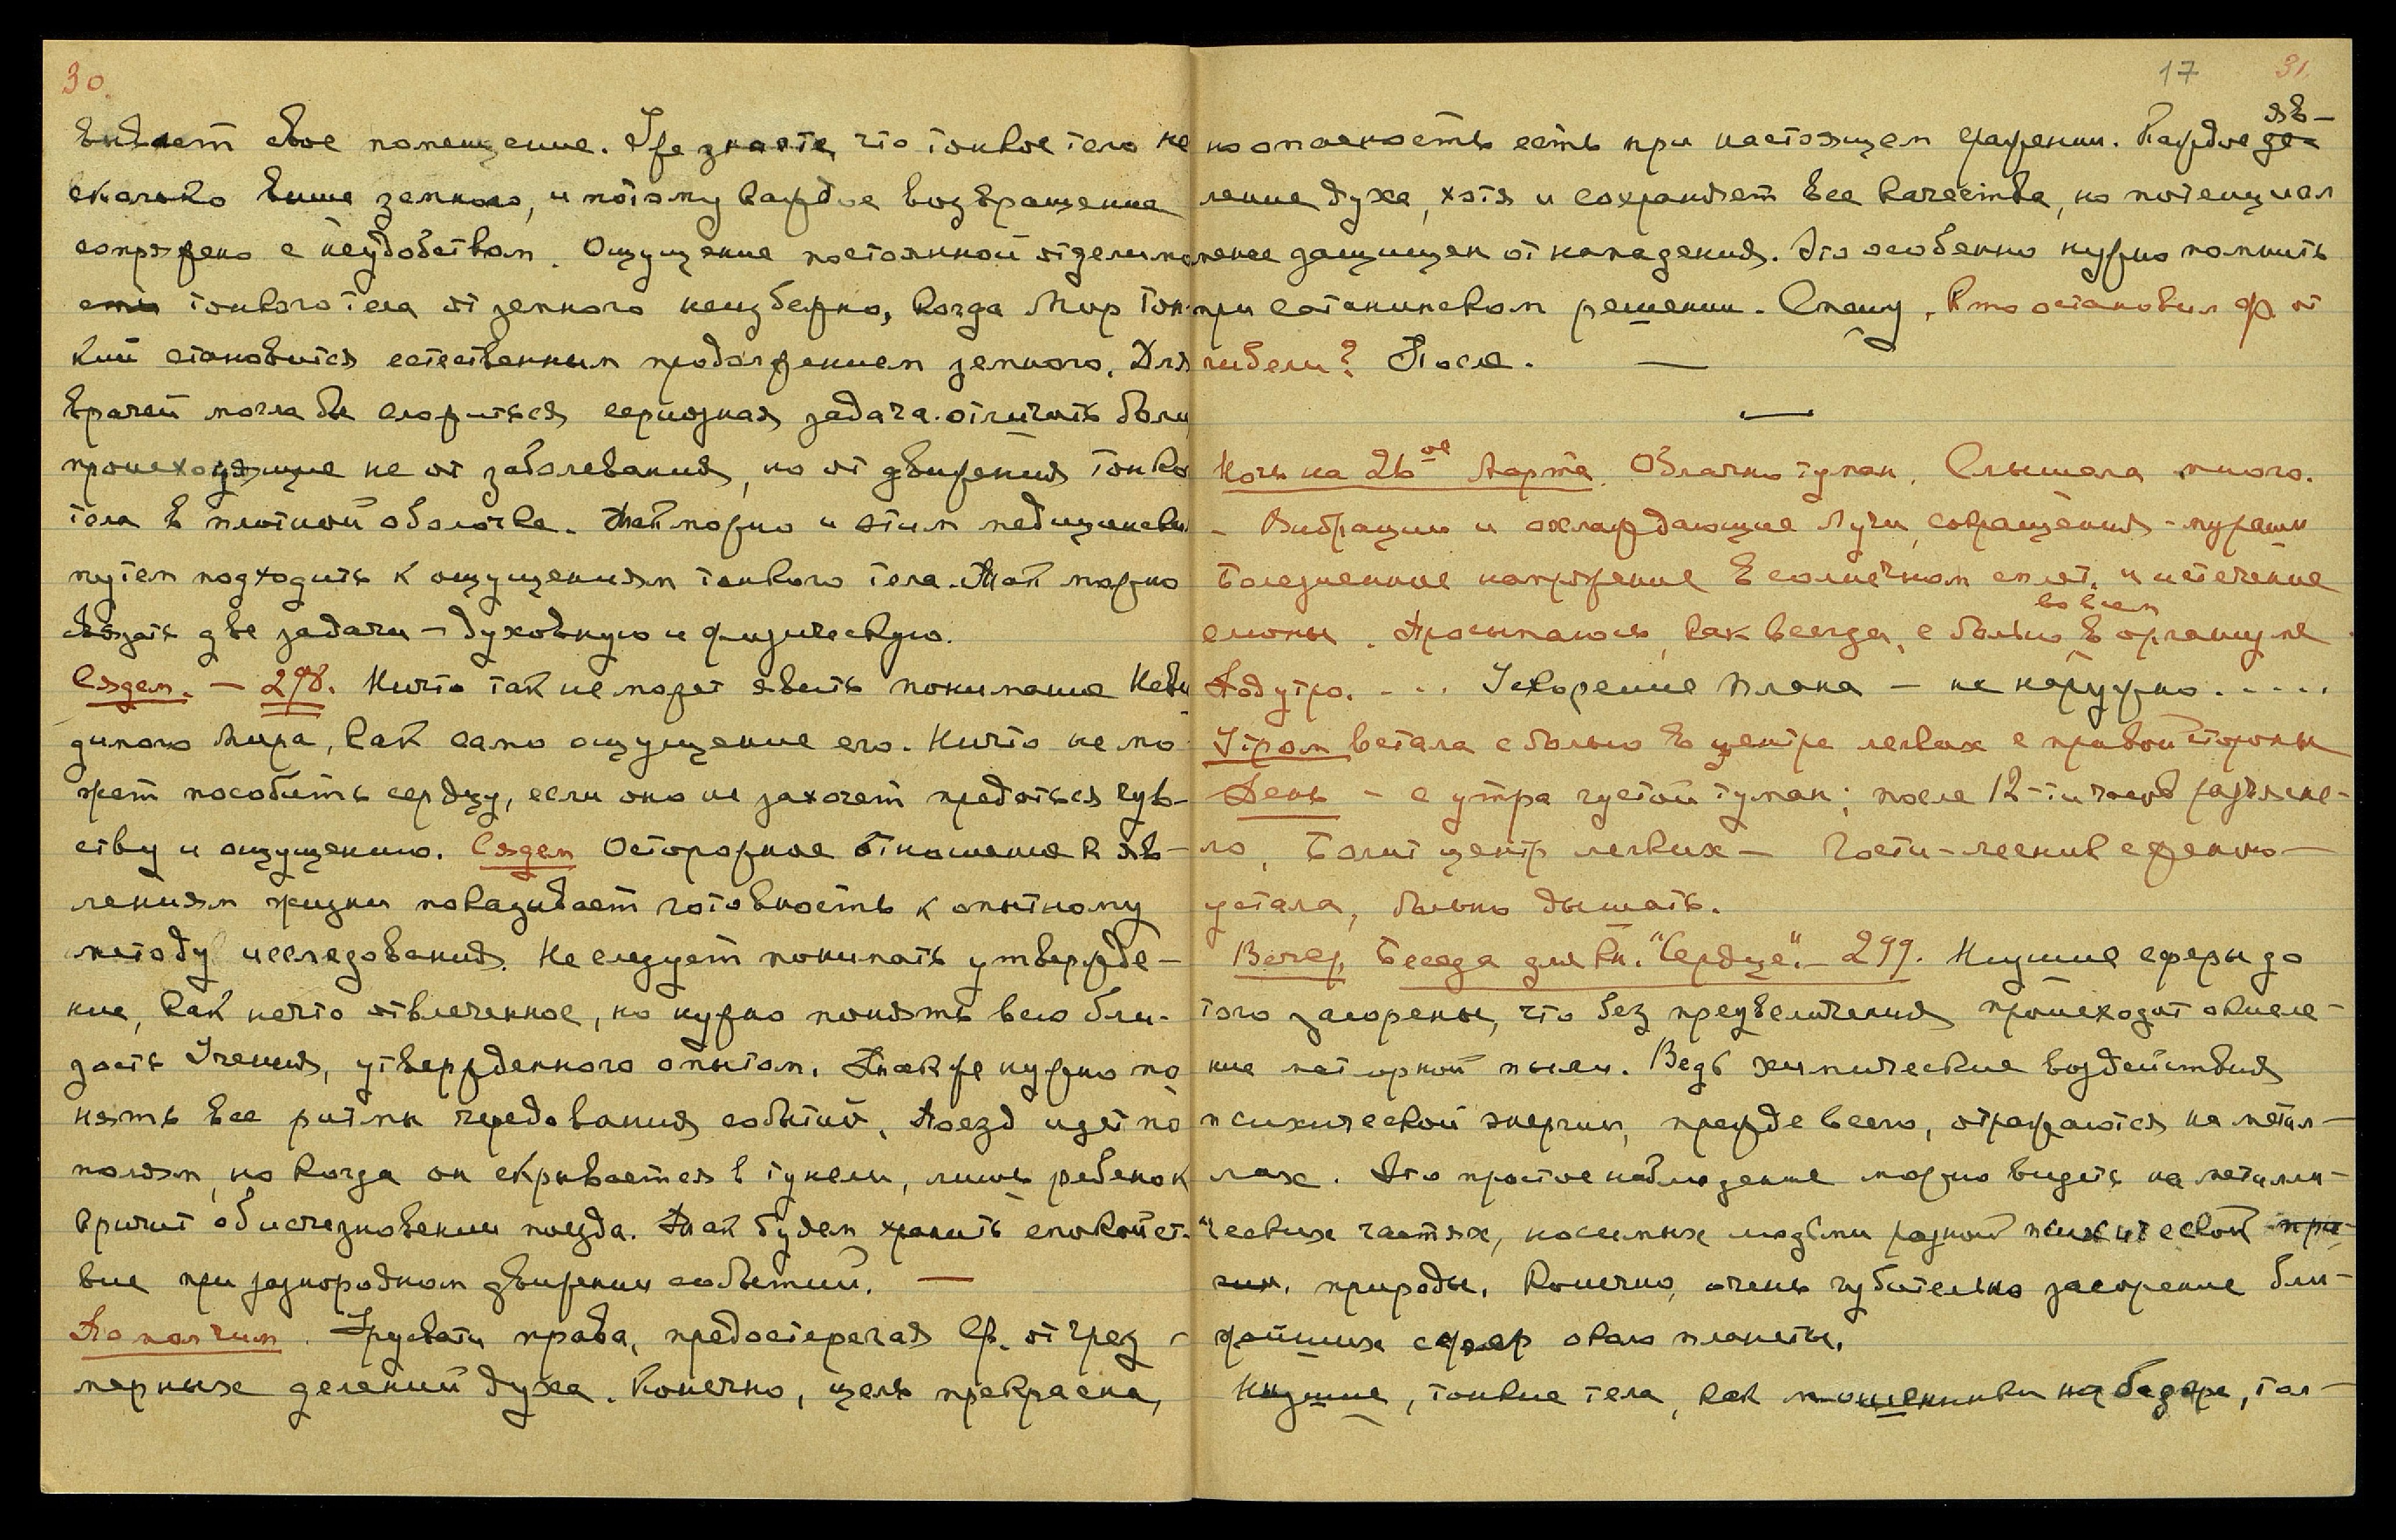 30.
вивает свое помещение. Уже знаете, что тонкое тело не
сколько выше земного, и потому каждое возвращение
сопряжено с неудобством. Ощущение постоянной отделимо
сти тонкого тела от земного неизбежно, когда Мир Тон-
кий становится естественным продолжением земного. Для
врачей могла бы сложиться серьезная задача отличить боли,
происходящие не от заболевания, но от движения тонко
тела в плотной оболочке. Так можно и этим медицинским
путем подходить к ощущениям тонкого тела. Так можно
связать две задачи — духовную и физическую.
Сядем. — 298. Ничто так не может явить понимание Неви
димого Мира, как само ощущение его. Ничто не мо
жет пособить сердцу, если оно не захочет предаться чув-
ству и ощущению. Сядем Осторожное отношение к яв-
лениям жизни показывает готовность к опытному
методу исследования. Не следует понимать утвержде-
ние, как нечто отвлеченное, но нужно понять всю бли-
зость Учения, утвержденного опытом. Также нужно по
нять все ритмы чередования событий. Поезд идет по
полям, но когда он скрывается в тунели, лишь ребенок
кричит об исчезновении поезда. Так будем хранить спокойст-
вие при разнородном движении событий. —
Помолчим. Урусвати права, предостерегая Ф. от чрез-
мерных делений духа. Конечно, цель прекрасна,
17 31.
но опасность есть при настоящем сражении. Каждое де- яв-
ление духа, хотя и сохраняет все качества, но потенциал
менее защищен от нападения. Это особенно нужно помнить
при сатанинском решении. Спашу, Кто остановил Ф. от
гибели? После. —
—
Ночь на 26ое Марта. Облачно туман. Слышала много.
- Вибрации и охлаждающие Лучи, сокращения - мурашки
Болезненное напряжение в солнечном сплет. и истечение
слюны. Просыпалась, как всегда, с болью в во всем организме.
Под утро. ... Ускорение Плана — не нарушено. ....
Утром встала с болью в центре легких с правой стороны
День - с утра густой туман; после 12-ти часов разъясне-
ло, Болит центр легких — Гости - лесник с женою —
устала, больно дышать.
Вечер, Беседа для кн. "Сердце". — 299. Низшие сферы до
того засорены, что без преувеличения происходит окисле-
ние метеорной пыли. Ведь химические воздействия
психической энергии, прежде всего, отражаются на метал-
лах. Это простое наблюдение можно видеть на металли-
ческих частях, носимых людьми разной психической при-
чин. природы. Конечно, очень губительно засорение бли-
жайших сфер около планеты.
Низшие, тонкие тела, как мошенники на базаре, тол-